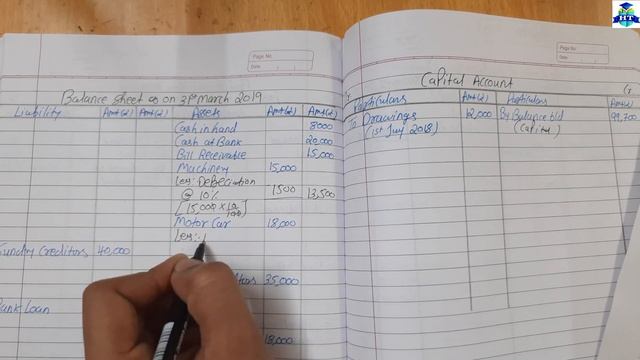 Page No.
Date
Balance sheet as on 31st March 2019
Liability Amt(₹) Amt(₹) Assets Amt(₹) Amt(₹)
Cash in hand 8000
Cash at Bank 20,000
Bill Receivable 15,000
Machinery 15,000
Les: Depreciation
@ 10% 1500 13,500
[15,000 × 10/100]
Motor Car 18,000
Les:
Sundry Creditors 40,000
35,000
Bank Loan
18,000
Page No.
Date
Capital Account
Particulars Amt(₹) Particulars Amt(₹)
To Drawings 12,000 By Balance b/d 99,700
(1st July 2018) (Capital)
IIT